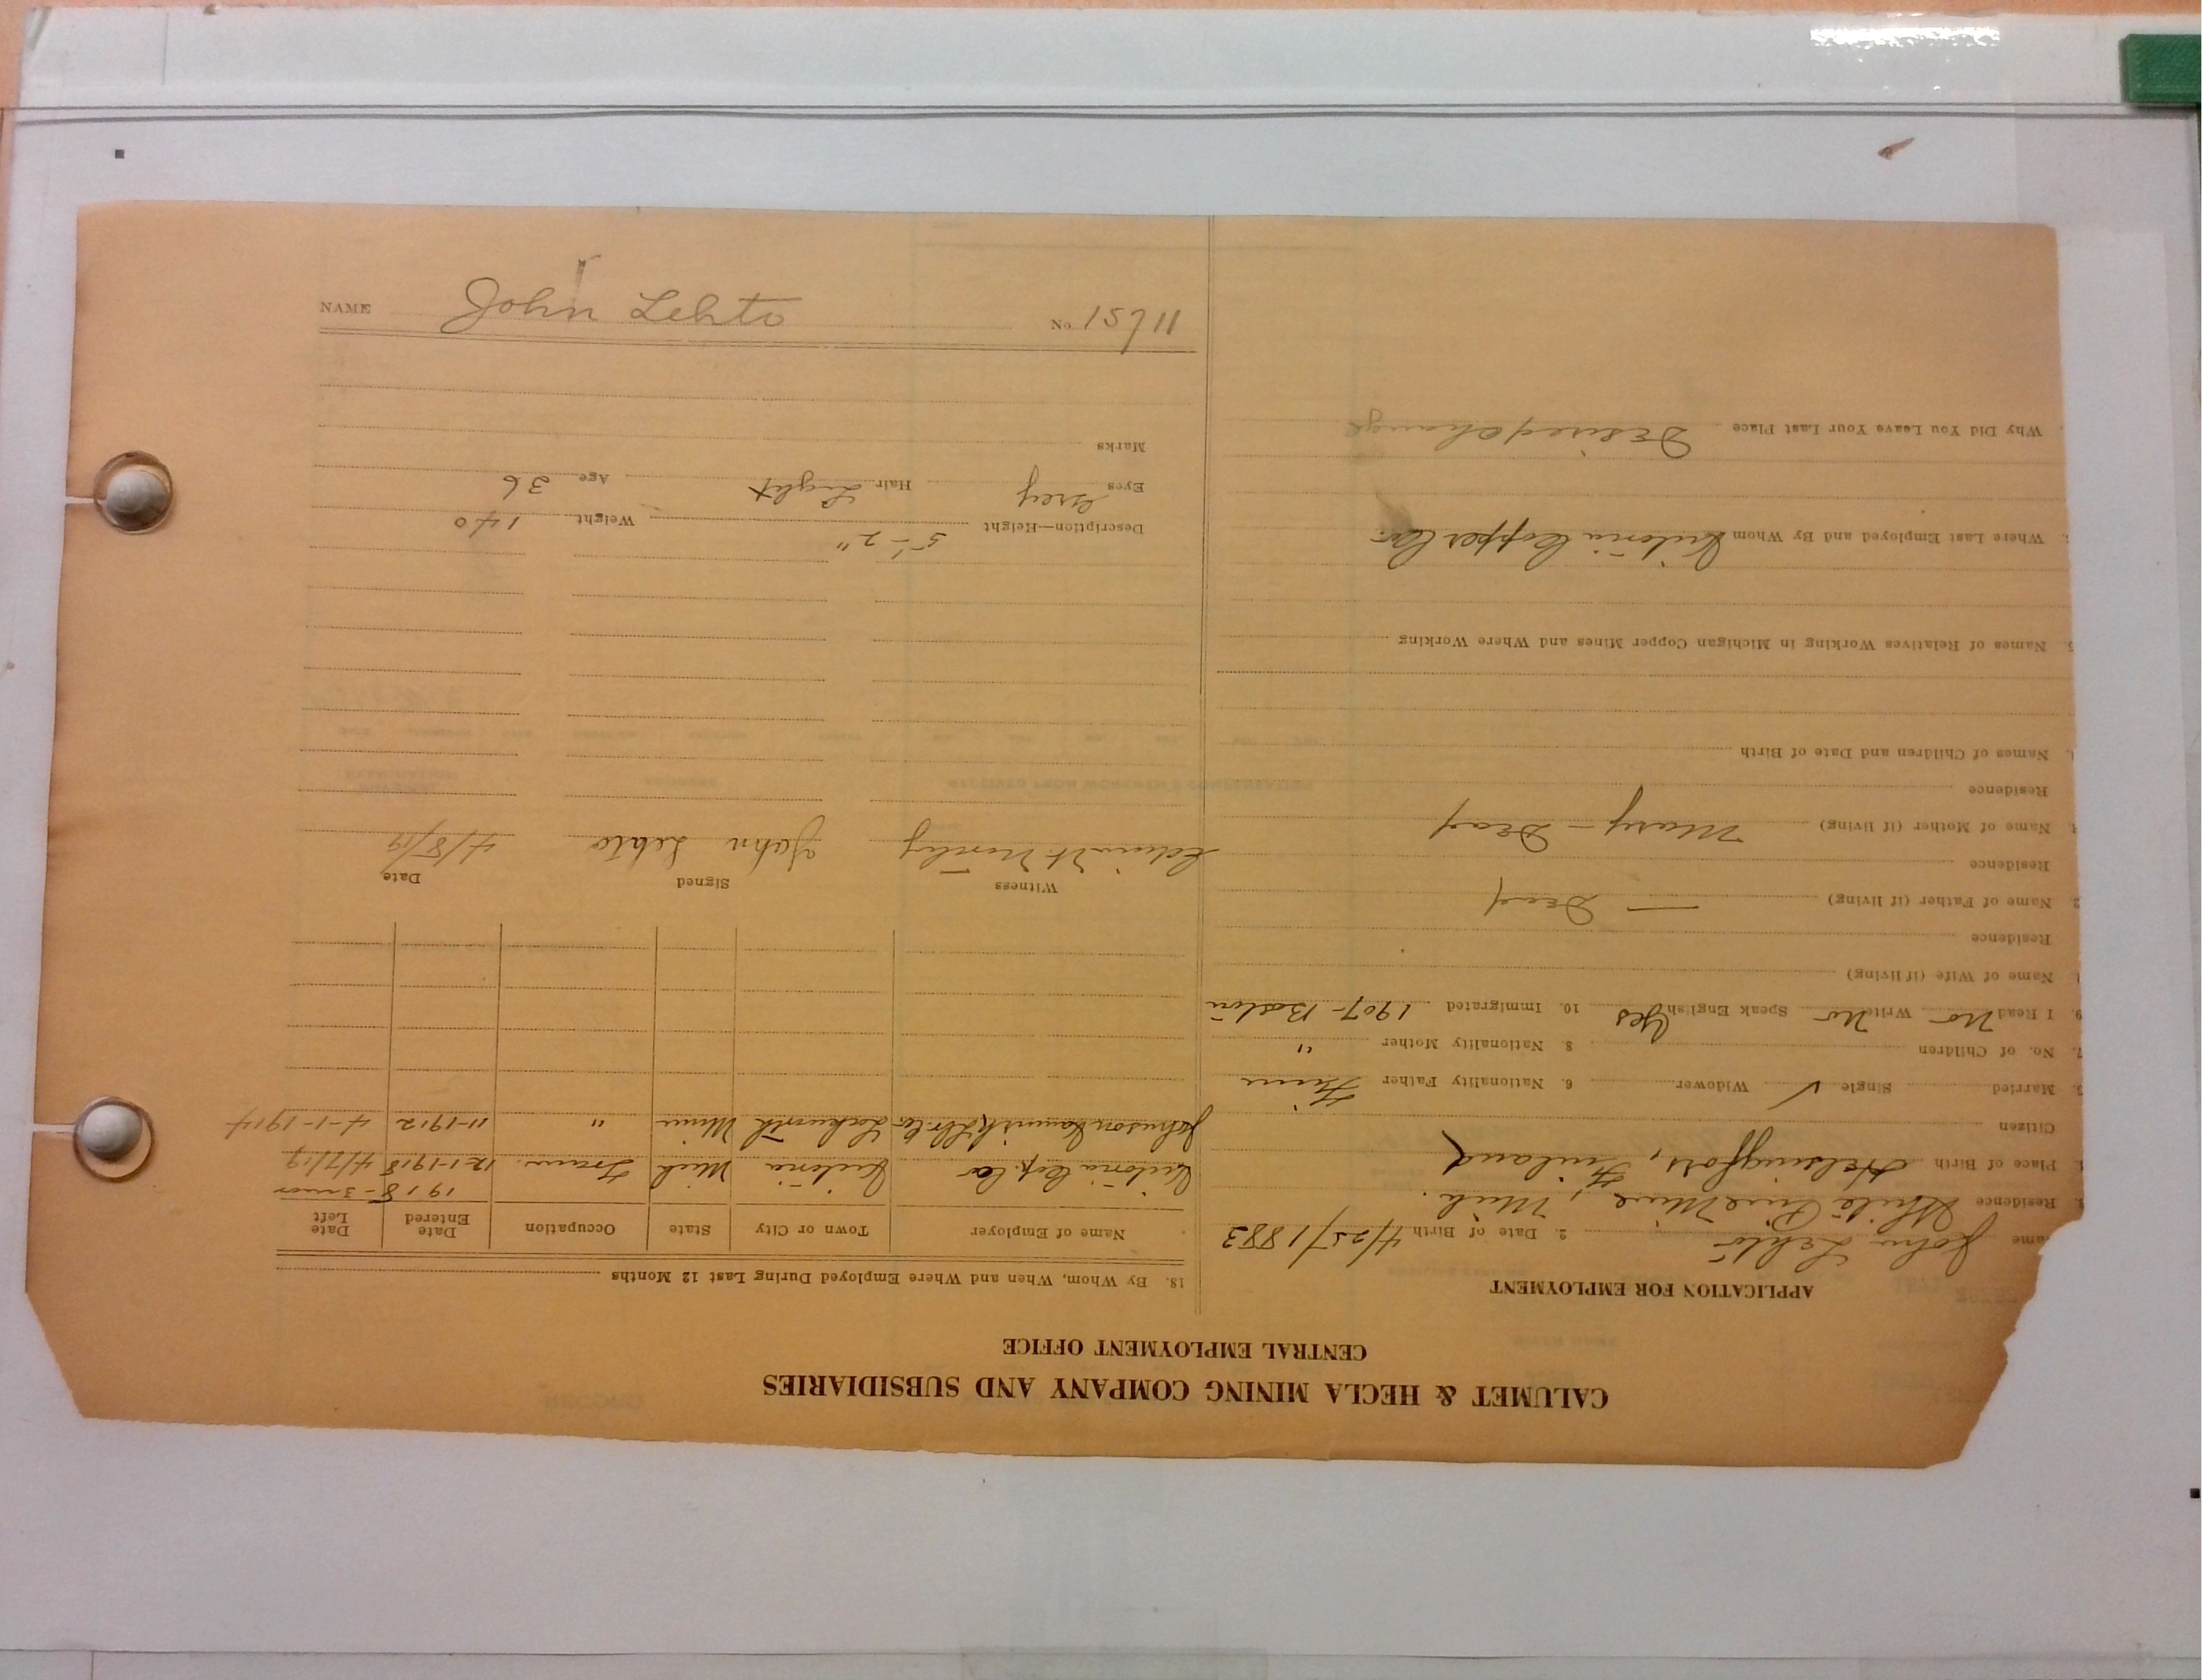 CALUMET & HECLA MINING COMPANY AND SUBSIDIARIES
CENTRAL EMPLOYMENT OFFICE
APPLICATION FOR EMPLOYMENT
ame John Lehto 2. Date of Birth 4/25/1883
Residence White Pine Mine, Mich.
Place of Birth Helsingfors, Finland
Citizen
Married Single ✓ Widower 6. Nationality Father Finn
7. No. of Children 8. Nationality Mother "
9. I Read No Write No Speak English Yes 10. Immigrated 1907 - Boston
Name of Wife (if living)
Residence
Name of Father (if living) — Dead
Residence
Name of Mother (if living) Mary - Dead
Residence
Names of Children and Date of Birth
Names of Relatives Working in Michigan Copper Mines and Where Working
Where Last Employed and By Whom Victoria Copper Co.
Why Did You Leave Your Last Place Desired change
18. By Whom, When and Where Employed During Last 12 Months
Name of Employer Town or City State Occupation Date Entered Date Left
1918 - 3 mos
Victoria Cop. Co Victoria Mich Tram. 12-1-1918 4/7/19
Johnson Minn " 11-1912 4-1-1914
Witness Signed Date
John Lehto 4/8/19
Description—Height 5'-2" Weight 140
Eyes Grey Hair Light Age 36
Marks
NAME John Lehto No. 15711